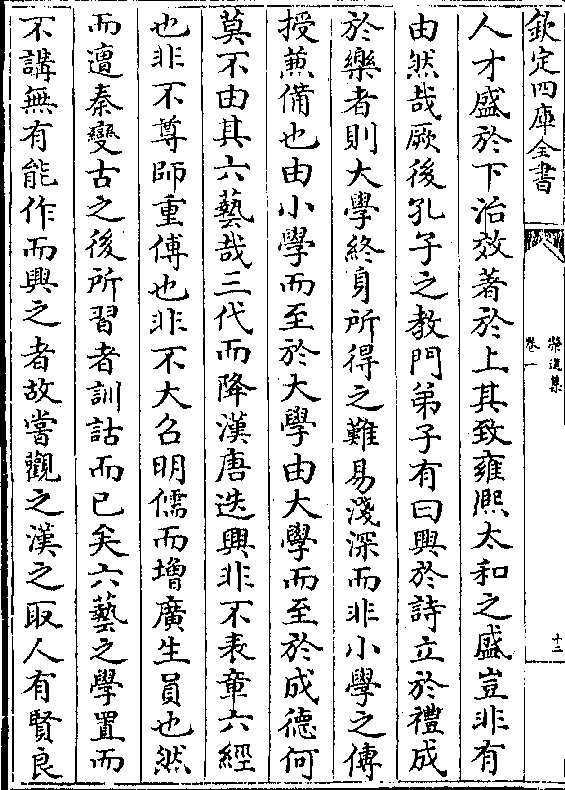 欽定四庫全書
卷一
十二
人才盛於下治效著於上其致雍熙太和之盛豈非有
由然哉厥後孔子之教門弟子有曰興於詩立於禮成
於樂者則大學終身所得之難易淺深而非小學之傳
授兼備也由小學而至於大學由大學而至於成德何
莫不由其六藝哉三代而降漢唐迭興非不表章六經
也非不尊師重傅也非不大召明儒而增廣生員也然
而遭秦變古之後所習者訓詁而已矣六藝之學置而
不講無有能作而興之者故嘗觀之漢之取人有賢良